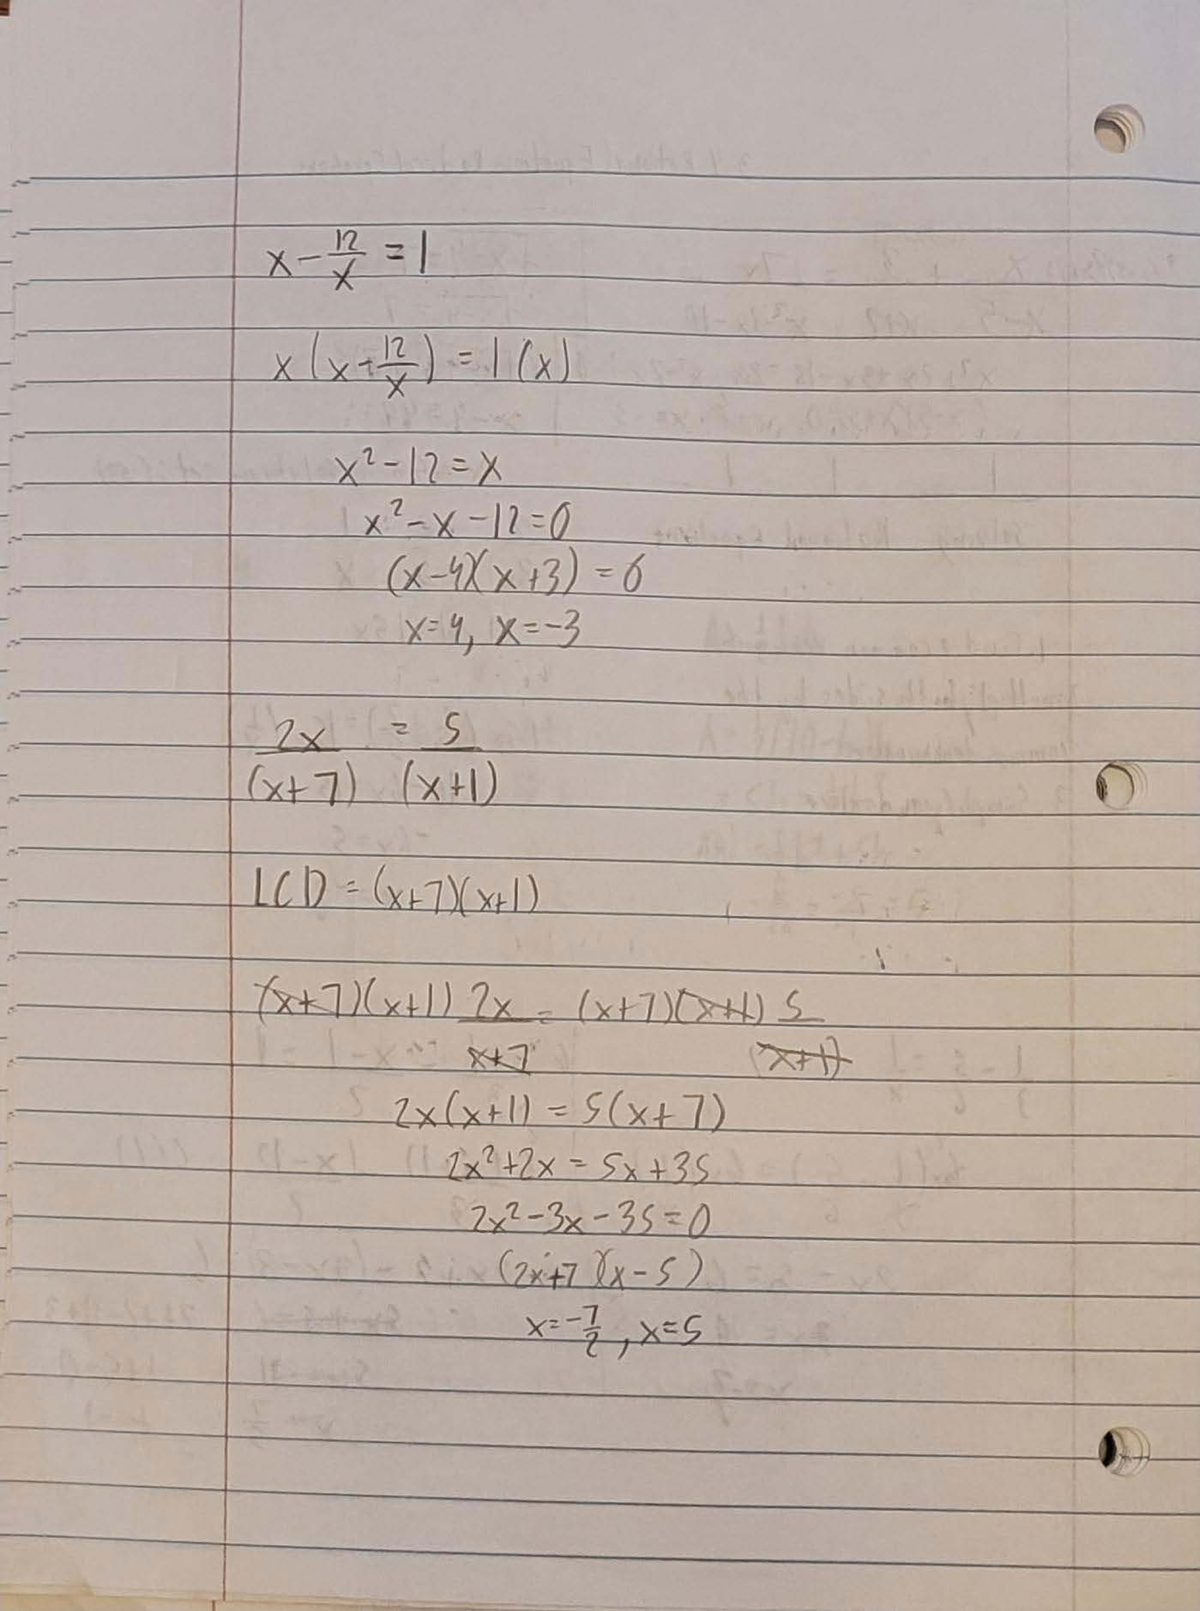 x - 12/x = 1
x(x + 12/x) = 1(x)
x² - 12 = x
x² - x - 12 = 0
(x-4)(x+3) = 0
x=4, x=-3
2x/(x+7) = 5/(x+1)
LCD = (x+7)(x+1)
(x+7)(x+1) 2x/x+7 = (x+7)(x+1) 5/(x+1)
2x(x+1) = 5(x+7)
2x²+2x = 5x+35
2x²-3x-35=0
(2x+7)(x-5)
x=-7/2, x=5